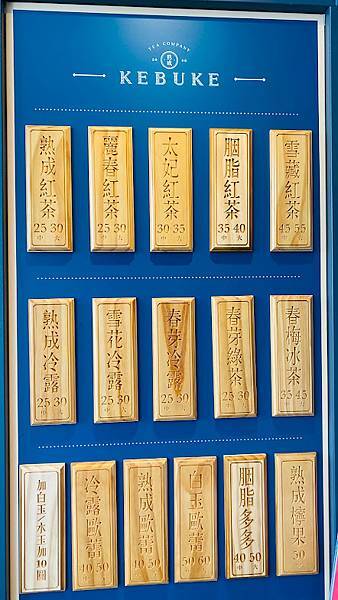 TEA COMPANY
可
KEBUKE
熟成紅茶
25 30
中 大
麗春紅茶
25 30
中 大
太妃紅茶
30 35
中 大
胭脂紅茶
35 40
中 大
雪藏紅茶
45 55
中 大
熟成冷露
25 30
中 大
雪花冷露
25 30
中 大
春芽冷露
25 30
中 大
春芽綠茶
25 30
中 大
春梅冰茶
35 45
中 大
加白玉/水玉加10圓
冷露歐蕾
40 50
中 大
熟成歐蕾
40 50
中 大
白玉歐蕾
50 60
中 大
胭脂多多
40 50
中 大
熟成檸果
50